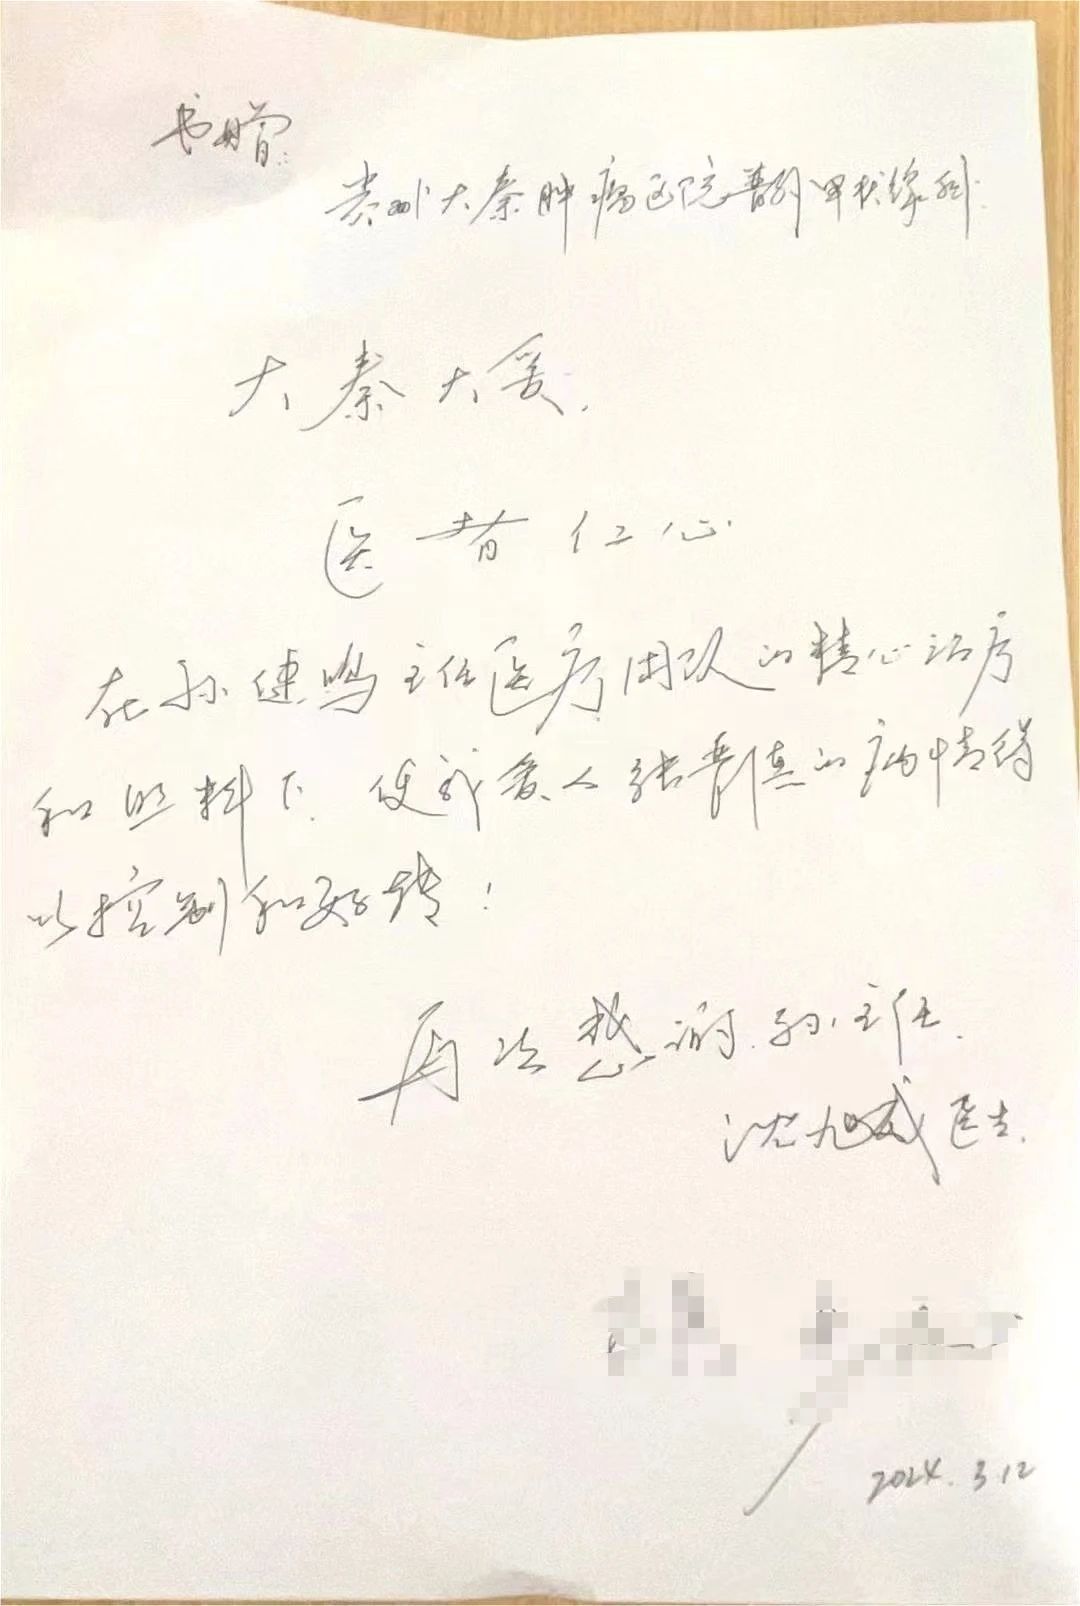 书赠:
贵州大秦肿瘤医院普外甲状腺科:
大秦大爱.
医者仁心.
在孙建鸣主任医疗团队的精心治疗
和照料下.使我爱人张晋真的病情得
以控制和好转!
再次感谢.孙主任.
沈旭成医生.
2024.3.12